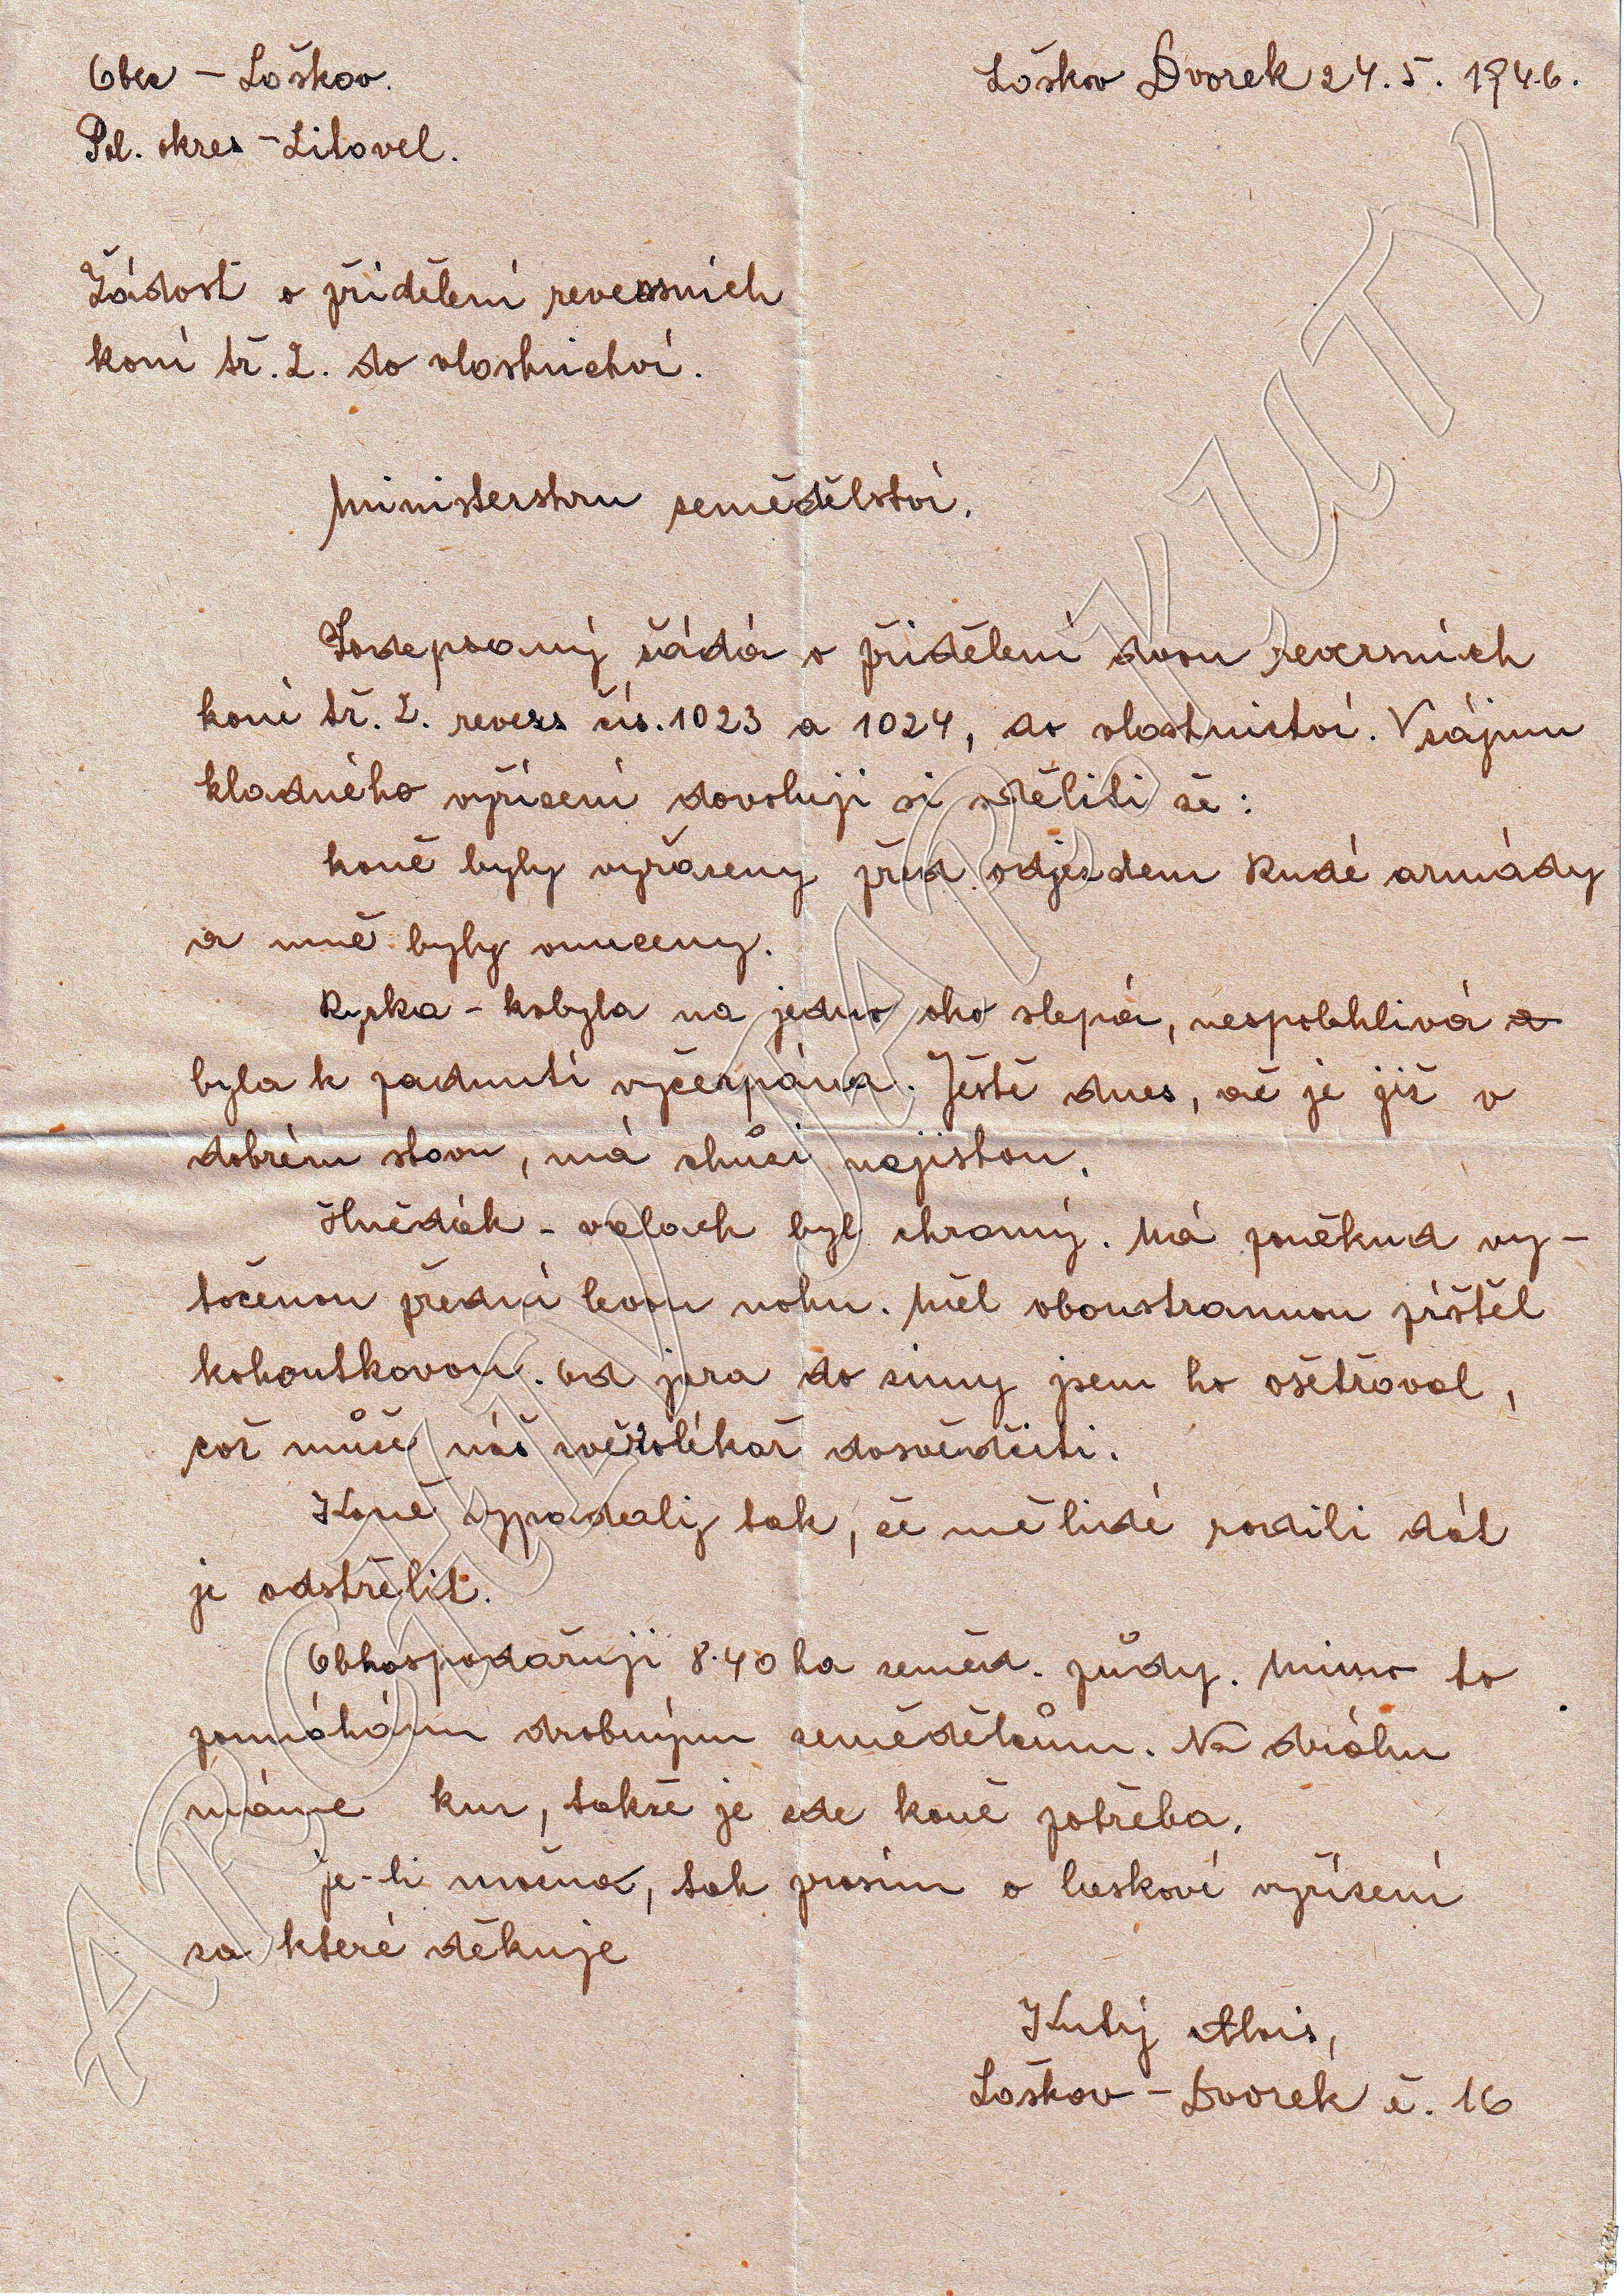 Obec – Loškov.
Loškov Dvorek 24. 5. 1946.
Pol. okres – Litovel.
Žádost o přidělení reversních
koní tř. 2. do vlastnictví.
Ministerstvu zemědělství.
Podepsaný žádá o přidělení dvou reversních
koní tř. 2. revers čís. 1023 a 1024, do vlastnictví. V zájmu
kladného vyřízení dovoluji si sděliti že:
koně byly vyřazeny před odjezdem Rudé armády
a mně byly vnuceny.
Ryzka – kobyla na jedno oko slepá, nespolehlivá a
byla k padnutí vyčerpána. Ještě dnes, ač je již v
dobrém stavu, má chůzi nejistou.
Hnědák – valach byl chromý. Má poněkud vy-
točenou přední levou nohu. Měl oboustrannou píštěl
kohoutkovou. Od jara do zimy jsem ho ošetřoval,
což může náš zvěrolékař dosvědčiti.
Koně vypadaly tak, že mě lidé radili dát
je odstřelit.
Obhospodařuji 8.40 ha zeměd. půdy. Mimo to
pomáhám drobným zemědělcům. Na dráhu
máme km, takže je zde koně potřeba.
Je-li možno, tak prosím o laskavé vyřízení
za které děkuje
Kutý Alois,
Loškov – Dvorek č. 16
ARCHIV JAR. KUTÝ